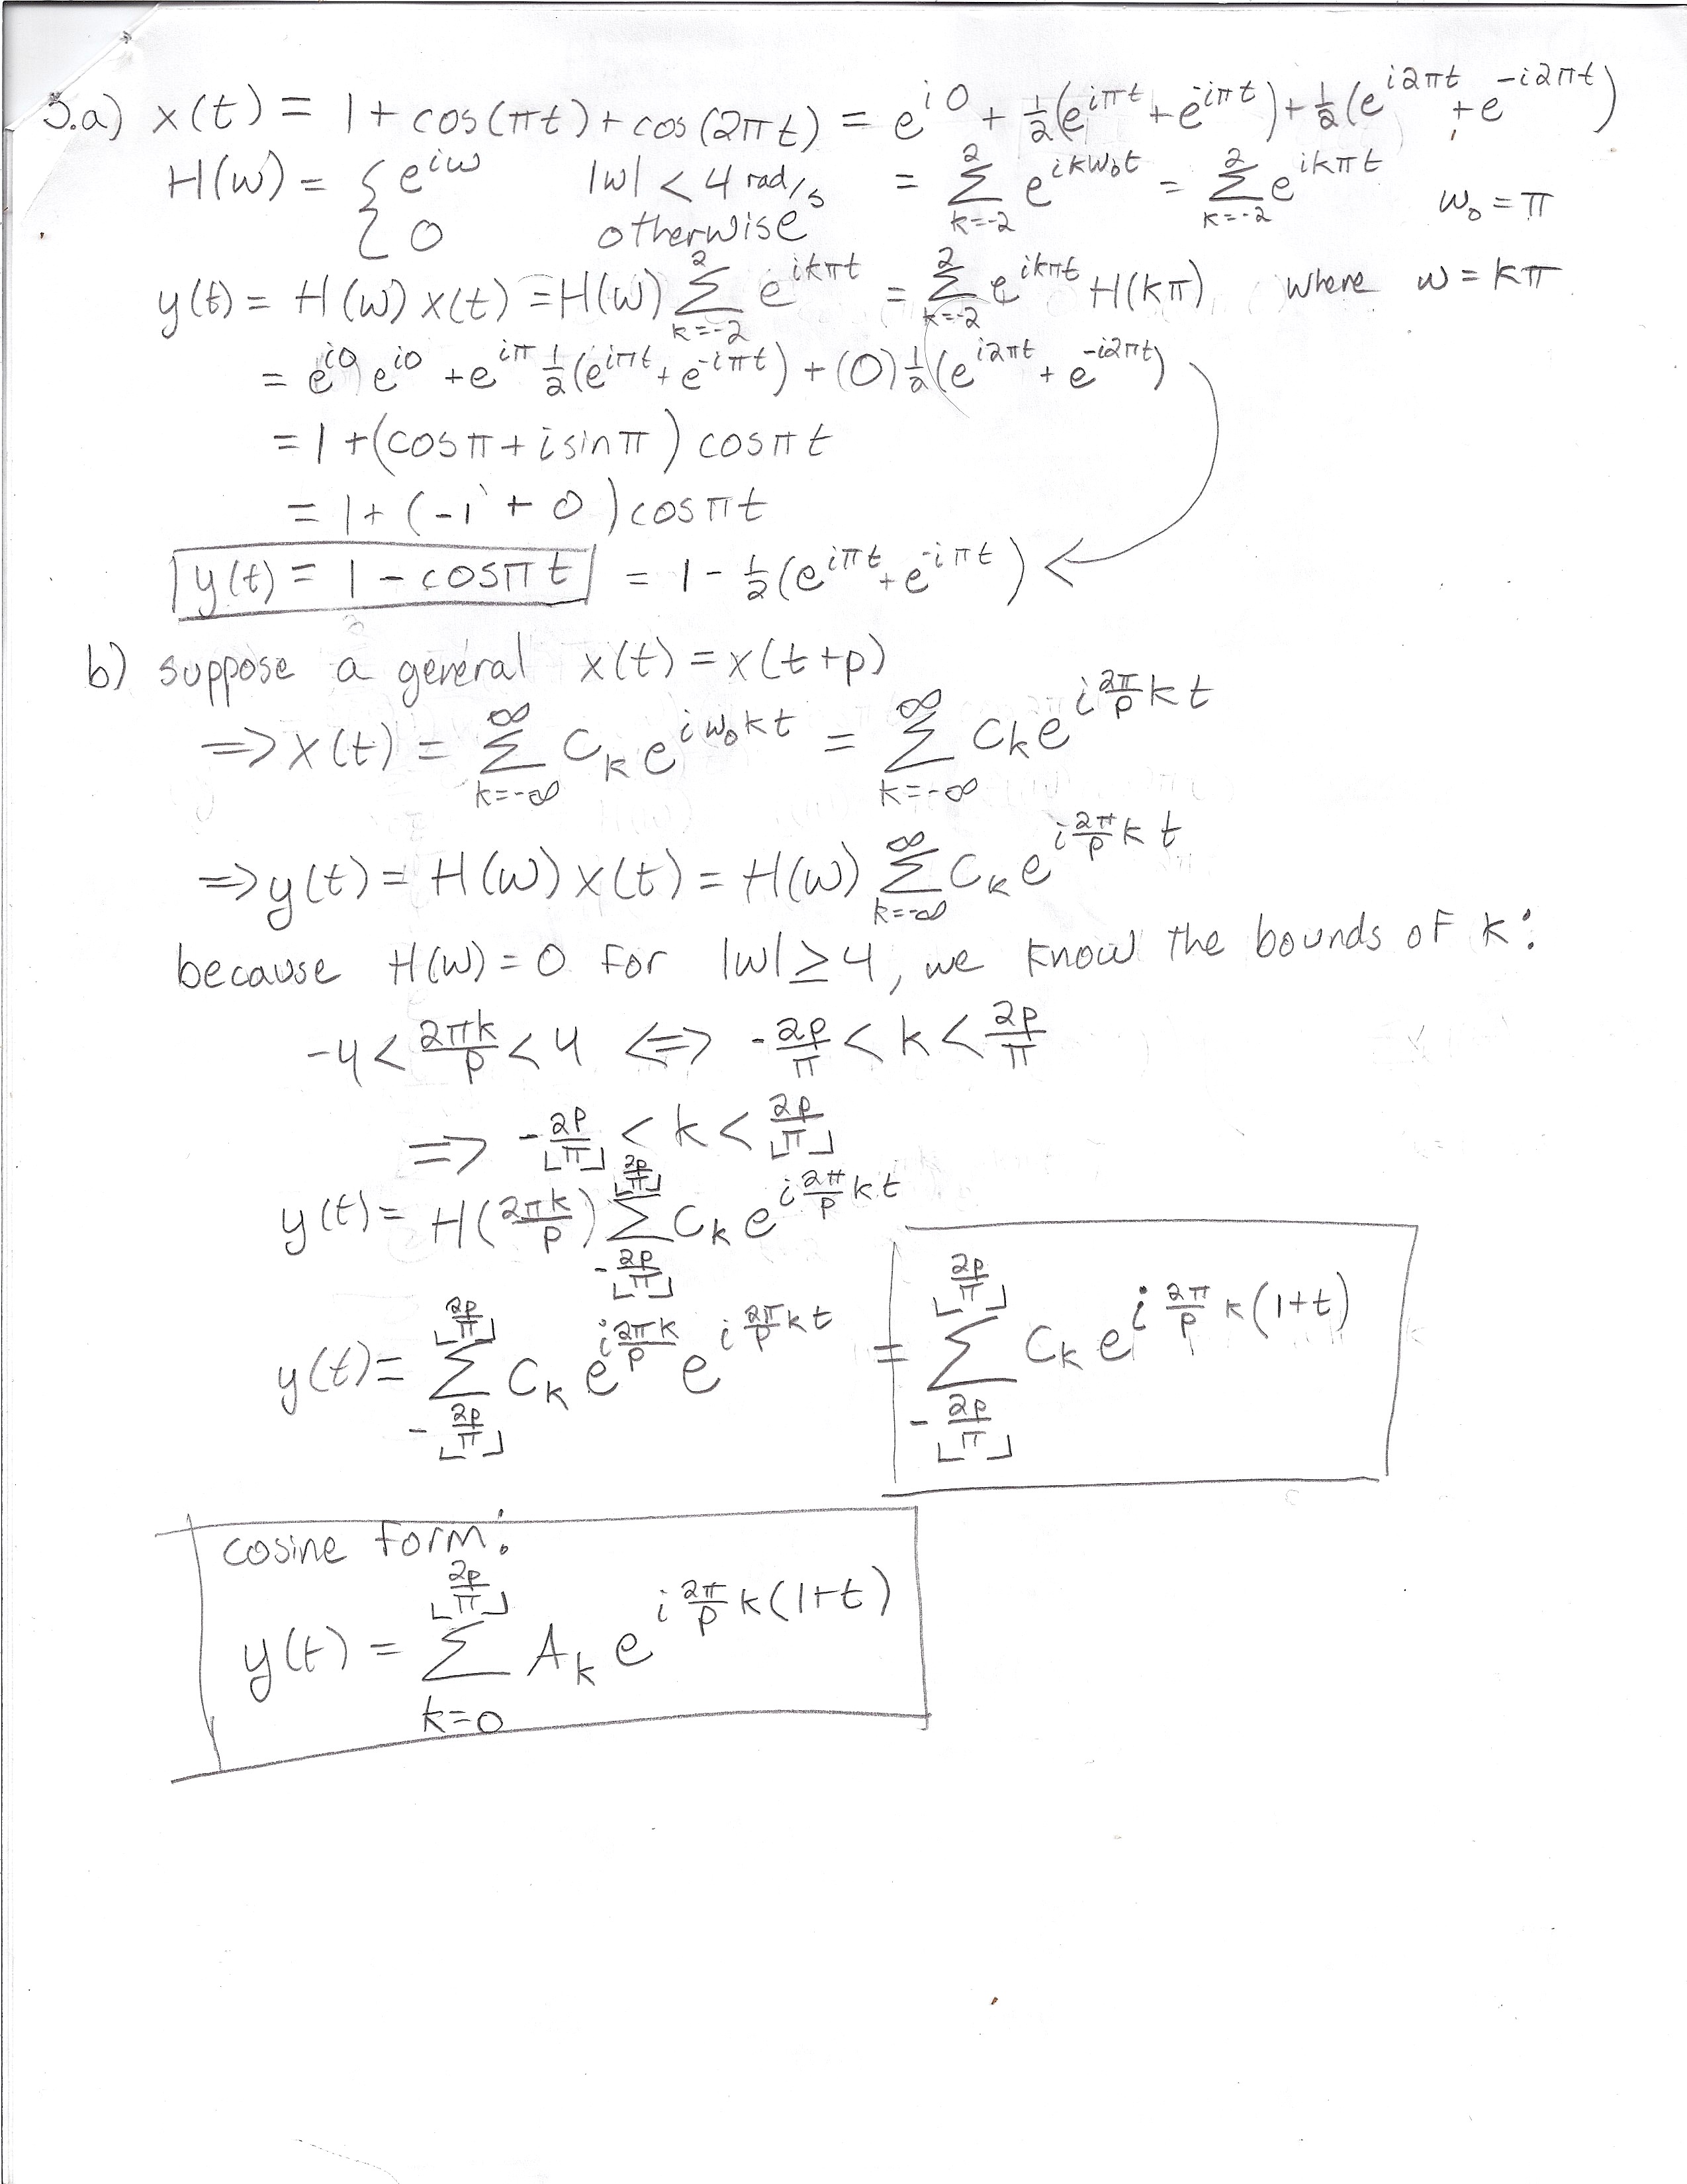 3.a) x(t) = 1 + cos(πt) + cos(2πt) = e^{i0} + ½(e^{iπt} + e^{-iπt}) + ½(e^{i2πt} + e^{-i2πt})
H(w) = { e^{iw} |w| < 4 rad/s = Σ_{k=-2}^{2} e^{ikw₀t} = Σ_{k=-2}^{2} e^{ikπt} w₀ = π
0 otherwise
y(t) = H(w) x(t) = H(w) Σ_{k=-2}^{2} e^{ikπt} = Σ_{k=-2}^{2} e^{ikπt} H(kπ) where w = kπ
= e^{i0} e^{i0} + e^{iπ} ½(e^{iπt} + e^{-iπt}) + (0) ½(e^{i2πt} + e^{-i2πt})
= 1 + (cosπ + i sinπ) cosπt
= 1 + (-1 + 0) cosπt
y(t) = 1 - cosπt = 1 - ½(e^{iπt} + e^{-iπt}) ←
b) suppose a general x(t) = x(t+p)
=> x(t) = Σ_{k=-∞}^{∞} C_k e^{iw₀kt} = Σ_{k=-∞}^{∞} C_k e^{i(2π/p)kt}
=> y(t) = H(w) x(t) = H(w) Σ_{k=-∞}^{∞} C_k e^{i(2π/p)kt}
because H(w) = 0 for |w| ≥ 4, we know the bounds of k:
-4 < 2πk/p < 4 <=> -2p/π < k < 2p/π
=> -⌊2p/π⌋ < k < ⌊2p/π⌋
y(t) = H(2πk/p) Σ_{-⌊2p/π⌋}^{⌊2p/π⌋} C_k e^{i(2π/p)kt}
y(t) = Σ_{-⌊2p/π⌋}^{⌊2p/π⌋} C_k e^{i2πk/p} e^{i(2π/p)kt} = Σ_{-⌊2p/π⌋}^{⌊2p/π⌋} C_k e^{i(2π/p)k(1+t)}
cosine form:
y(t) = Σ_{k=0}^{⌊2p/π⌋} A_k e^{i(2π/p)k(1+t)}